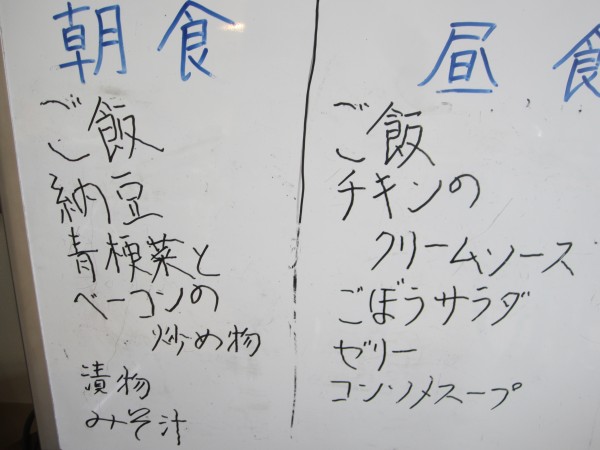 朝食
ご飯
納豆
青梗菜と
ベーコンの
炒め物
漬物
みそ汁
昼食
ご飯
チキンの
クリームソース
ごぼうサラダ
ゼリー
コンソメスープ